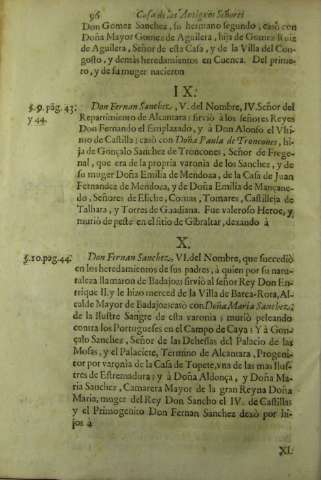 96 Casa de los Antiguos Señores
Don Gomez Sanchez, su hermano segundo, casò con
Doña Mayor Gomez de Aguilera, hija de Gomez Ruiz
de Aguilera, Señor de esta Casa, y de la Villa del Con-
gosto, y demàs heredamientos en Cuenca. Del prime-
ro, y de su muger nacieron
IX.
§. 9. pag. 43.
y 44.
Don Fernan Sanchez, V. del Nombre, IV. Señor del
Repartimiento de Alcantara: sirviò à los señores Reyes
Don Fernando el Emplazado, y à Don Alonso el Vlti-
mo de Castilla; casò con Doña Paula de Troncones, hi-
ja de Gonçalo Sanchez de Troncones, Señor de Frege-
nal, que era de la propria varonia de los Sanchez, y de
su muger Doña Emilia de Mendoza, de la Casa de Juan
Fernandez de Mendoza, y de Doña Emilia de Mançane-
do, Señores de Esliche, Comas, Tomares, Castilleja de
Talhara, y Torres de Guadiana. Fue valeroso Heroe, y
muriò de peste en el sitio de Gibraltar, dexando à
X.
§. 10. pag. 44.
Don Fernan Sanchez, VI. del Nombre, que sucediò
en los heredamientos de sus padres, à quien por su natu-
raleza llamaron de Badajoz sirviò al señor Rey Don En-
rique II. y le hizo merced de la Villa de Barca-Rota, Al-
calde Mayor de Badajoz casò con Doña Maria Sanchez,
de la Ilustre Sangre de esta varonia; muriò peleando
contra los Portugueses en el Campo de Caya: Y à Gon-
çalo Sanchez, Señor de las Dehessas del Palacio de las
Mosas, y el Palaciete, Termino de Alcantara, Progeni-
tor por varonia de la Casa de Topete, vna de las mas Ilus-
tres de Estremadura: y à Doña Aldonça, y Doña Ma-
ria Sanchez, Camarera Mayor de la gran Reyna Doña
Maria, muger del Rey Don Sancho el IV. de Castillas
y el Primogenito Don Fernan Sanchez dexò por hi-
jos à
XI.